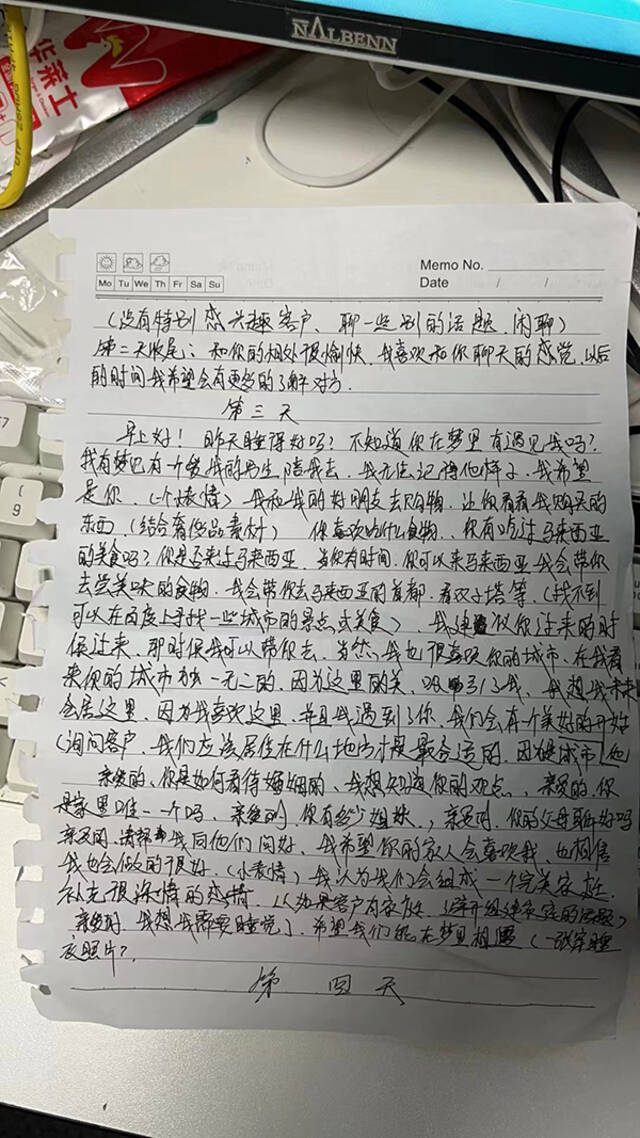 NALBENN
华莱士
Memo No.
Mo Tu We Th Fr Sa Su
Date / /
(没有特别感兴趣客户、聊一些别的话题、闲聊)
第二天收尾:和你的相处很愉快、我喜欢和你聊天的感觉、以后
的时间我希望会有更多的了解对方.
第三天
早上好!昨天睡得好吗?不知道你在梦里有遇见我吗?
我有梦见有一个像我的男生陪我去、我无法记得他样子、我希望
是你、(一个表情)我和我的好朋友去购物、让你看看我购买的
东西、(结合奢侈品素材) 你喜欢吃什么食物、、你有吃过马来西亚
的美食吗?你是否来过马来西亚、当你有时间、你可以来马来西亚我会带你
去尝美味的食物、我会带你去马来西亚的首都、看双子塔等、(找不到
可以在百度上寻找一些城市的景点或美食)、我建议你过来的时
候过来、那时候我可以带你去、当然、我也很喜欢你的城市、在我看
来你的城市独一无二的、因为这里的美、吸引了我、我想我未来
会居这里、因为我喜欢这里、并且我遇到了你、我们会有一个美好的开始
(询问客户、我们应该居住在什么地方才是最合适的、因为是城市
亲爱的、你是如何看待婚姻的、我想知道你的观点、、亲爱的、你
是家里唯一一个吗、亲爱的、你有多少姐妹、,亲爱的、你的父母都好吗
亲爱的、请帮我向他们问好、我希望你的家人会喜欢我、也相信
我也会做的很好、(小表情)我认为我们会组成一个完美家庭、
补充很深情的感情、(如果客户有家庭、避开组建家庭的话题)
亲爱的、我想我需要睡觉了、希望我们能在梦里相遇(一张穿睡
衣照片?
第四天